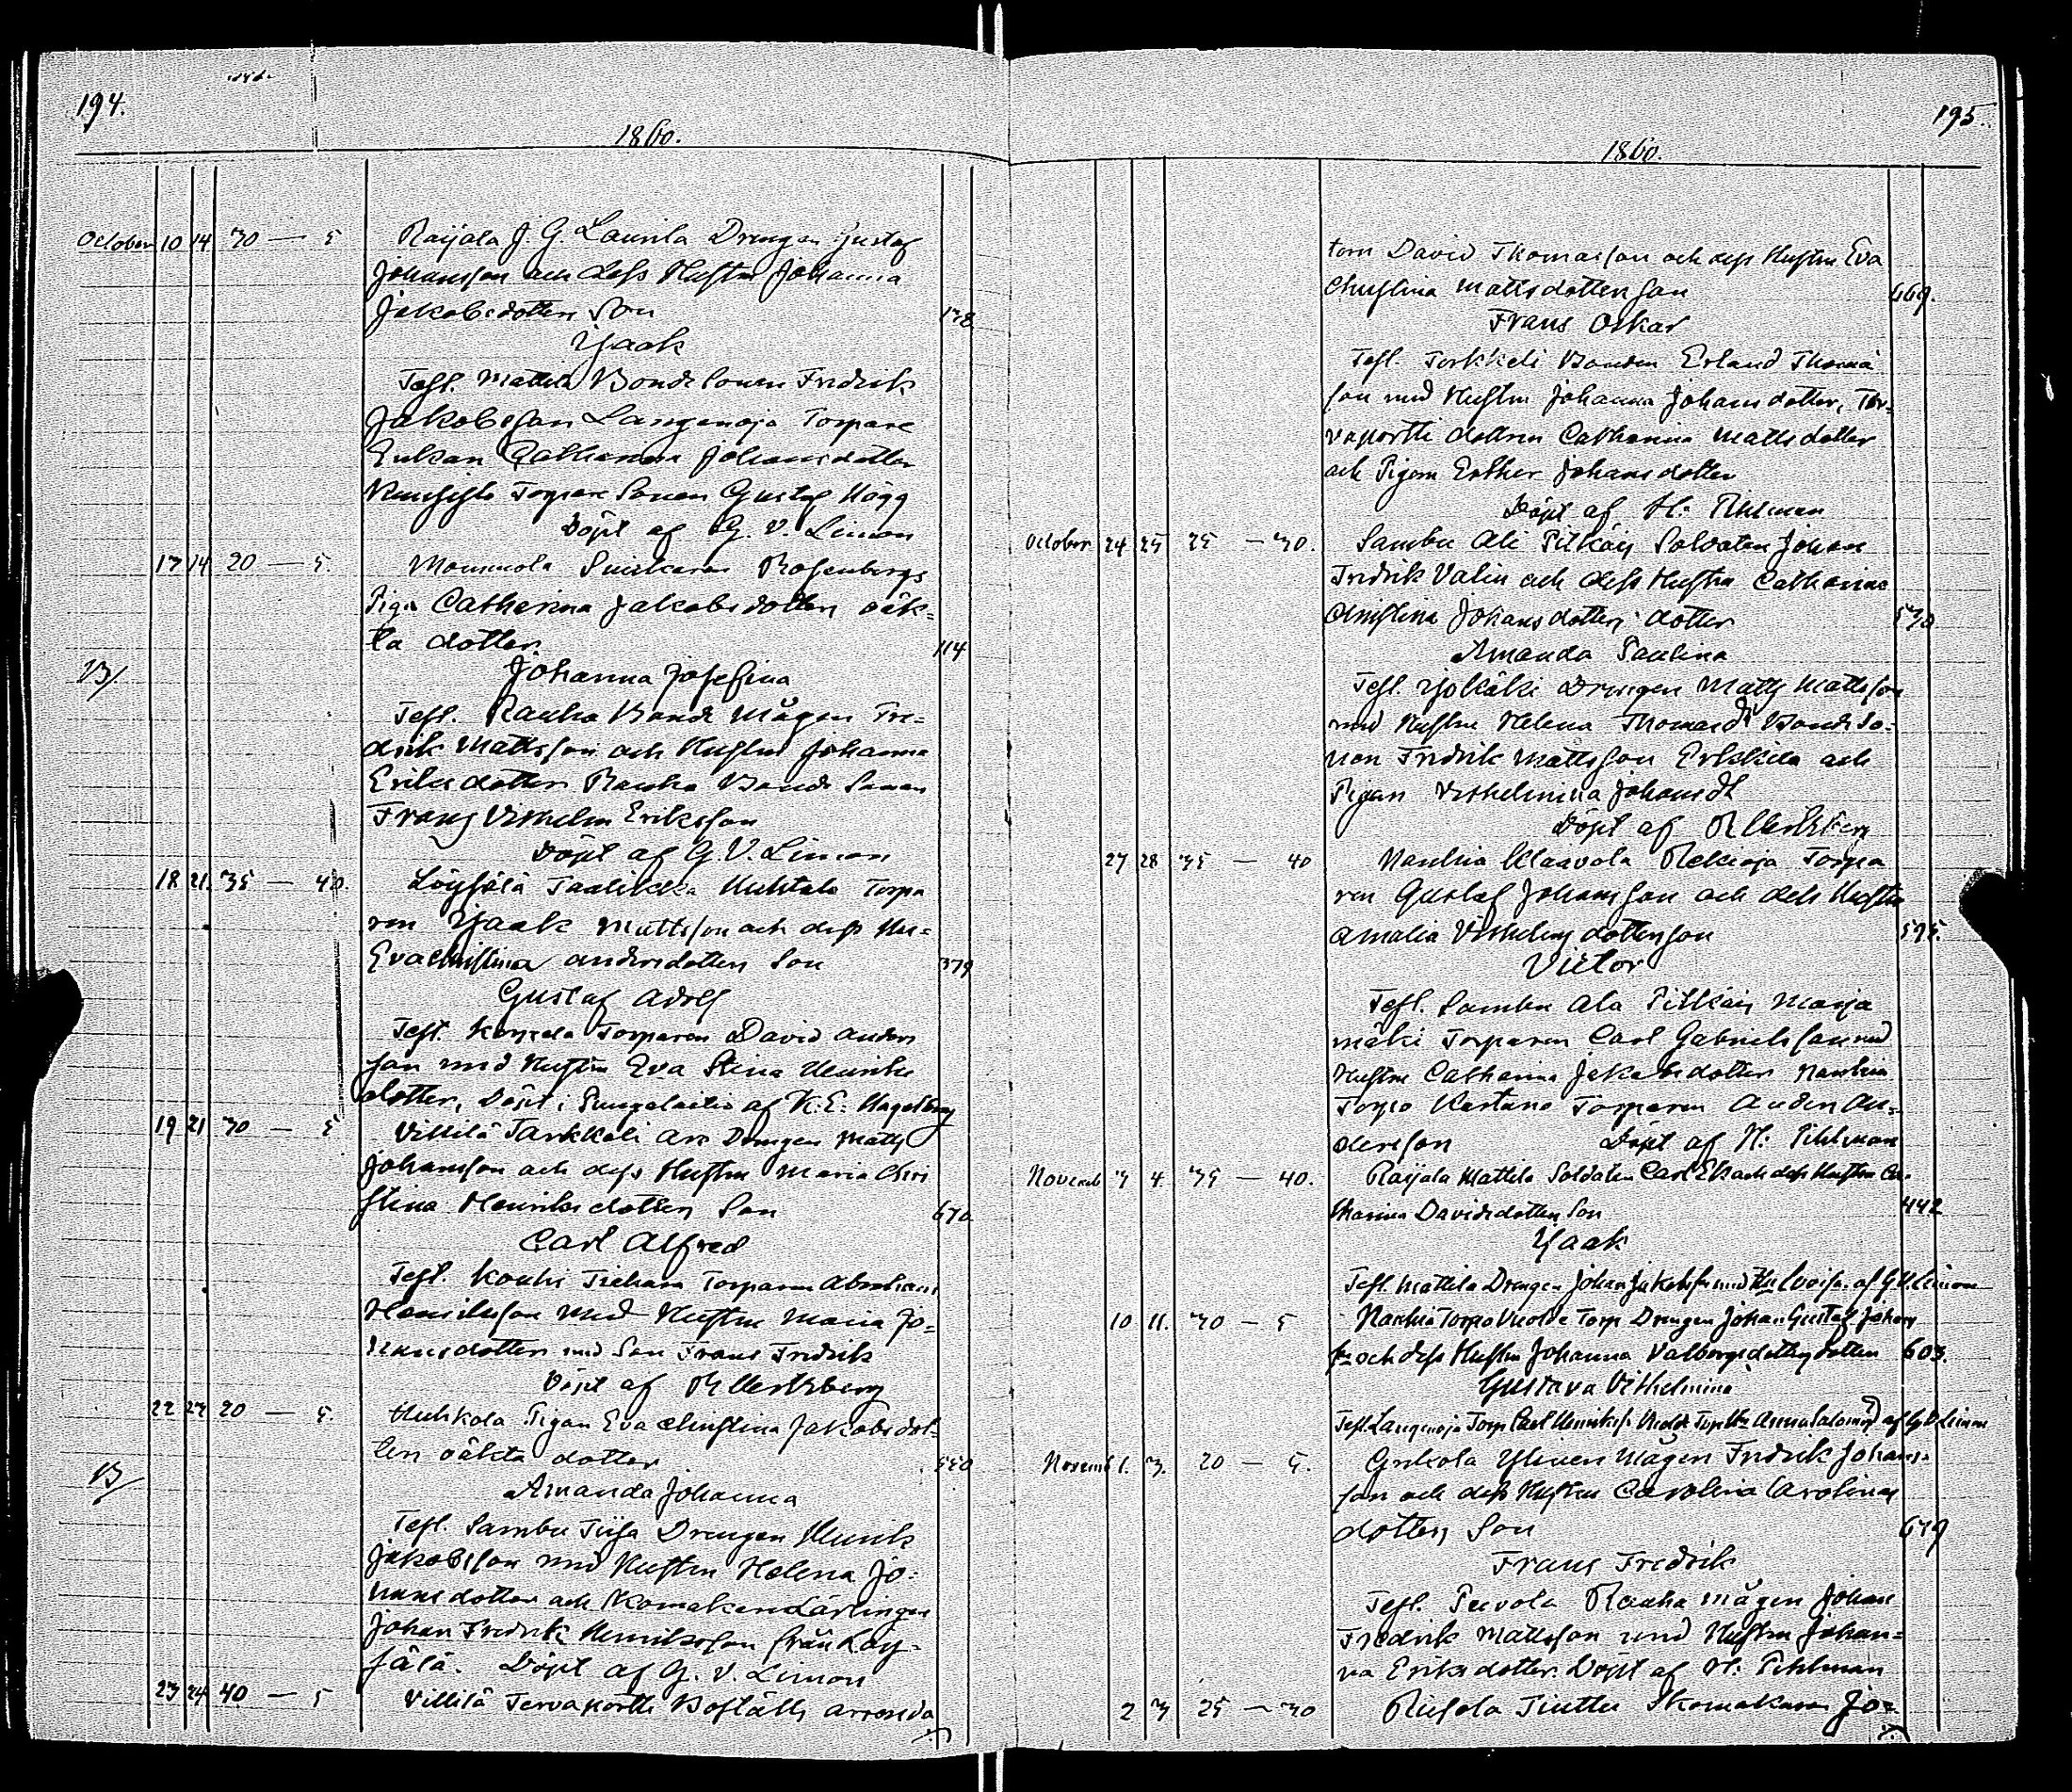 194.
1860.
October 10 14 30 — 5 Raijala J. G. Laurila Drengen Gustaf
Johansson och dess Hustru Johanna
Jakobsdotters Son 138
Isaak
Test. Mattila Bondesonen Fredrik
Jakobsson Langenoja Torpare
Enkan Catharina Johansdotter
Torpare Sonen Gustaf Hägg
Döpt af G. V. Limon
13 14 20 — 5. Mommola Rosenbergs
Piga Catharina Jakobsdotters oäk=
ta dotter. 114
B/. Johanna Josefina
Test. Rauha Bonde Mågen Fre=
drik Mattsson och Hustru Johanna
Eriksdotter Rauha Bonde Sonen
Frans Vilhelm Eriksson
Döpt af G. V. Limon
18 21. 35 — 40. Löysälä Taalikka Huhtala Torpa
ren Isaak Mattsson och dess Hu=
Eva Christina Andersdotters Son 379
Gustaf Adolf
Test. Torparen David Anders
son med Hustru Eva Stina Henriks
dotter, Döpt i Pungalaitio af K. E. Hagelberg
19 21 30 — 5 Villilä Tarkkeli Drengen Matts
Johansson och dess Hustru Maria Chri
stina Henriksdotters Son 670
Carl Alfred
Test. Kouhi Torparen Abraham
Henriksson med Hustru Maria Jo=
hansdotter med Son Frans Fredrik
Döpt af
22 24 20 — 5. Huhkola Pigan Eva Christina Jakobsdot=
ters oäkta dotter 550
B/ Amanda Johanna
Test. Sambu Tiisa Drengen Henrik
Jakobsson med Hustru Helena Jo=
hansdotter och Skomakare Lärlingen
Johan Fredrik Henriksson från Löy=
sälä. Döpt af G. V. Limon
23 24 40 — 5 Villilä Tervaportti Boställs arrenda
195.
1860.
torn David Thomasson och dess Hustru Eva
Christina Mattsdotters son 669.
Frans Oskar
Test. Torkkeli Bonden Erland Thoma
son med Hustru Johanna Johansdotter, Ter=
vaportti dottren Catharina Mattsdotter
och Pigan Esther Johansdotter
Döpt af H: Pihlman
October 24 25 25 — 30. Sambu Ali Pitkäis Soldaten Johan
Fredrik Valin och dess Hustru Catharina
Christina Johansdotters dotter 570
Amanda Paulina
Test. Drengen Matts Mattsson
med Hustru Helena Thomasdr Bondeso=
nen Fredrik Mattsson Erkkilä och
Pigan Vilhelmina Johansdt
Döpt af
27 28 35 — 40 Nauhia Klaavola Rekioja Torpa
ren Gustaf Johansson och dess Hustru
Amalia Vilhelmsdotters son 595.
Victor
Test. Sambu Ala Pitkäis Marja
mäki Torparen Carl Gabrielsson med
Hustru Catharina Jakobsdotter Nauhia
Torpo Torparen Anders An=
dersson Döpt af H: Pihlman
Novemb 3 4. 35 — 40. Raijala Mattila Soldaten Carl Ek och dess Hustru Ca=
tharina Davidsdotters Son 442
Isaak
Test. Mattila Drengen Johan Jakobsson med Hu Lovisa. af G. V. Limon
10 11. 30 — 5 Nauhia Torpo Torp Drengen Johan Gustaf Johans
son och dess Hustru Johanna Valborgsdotters dotter 603.
Gustava Vilhelmina
Test. Langenoja Torp Carl Henrikss. Anna Salome af G. V. Limon
Novemb 1. 3. 20 — 5. Grekola Ylinen Mågen Fredrik Johans=
son och dess Hustru Carolina Carolina
dotters Son 679
Frans Fredrik
Test. Peevola Rauha Mågen Johan
Fredrik Mattsson med Hustru Johan=
na Eriksdotter. Döpt af H: Pihlman
2 3 25 — 30 Skomakaren Jo=